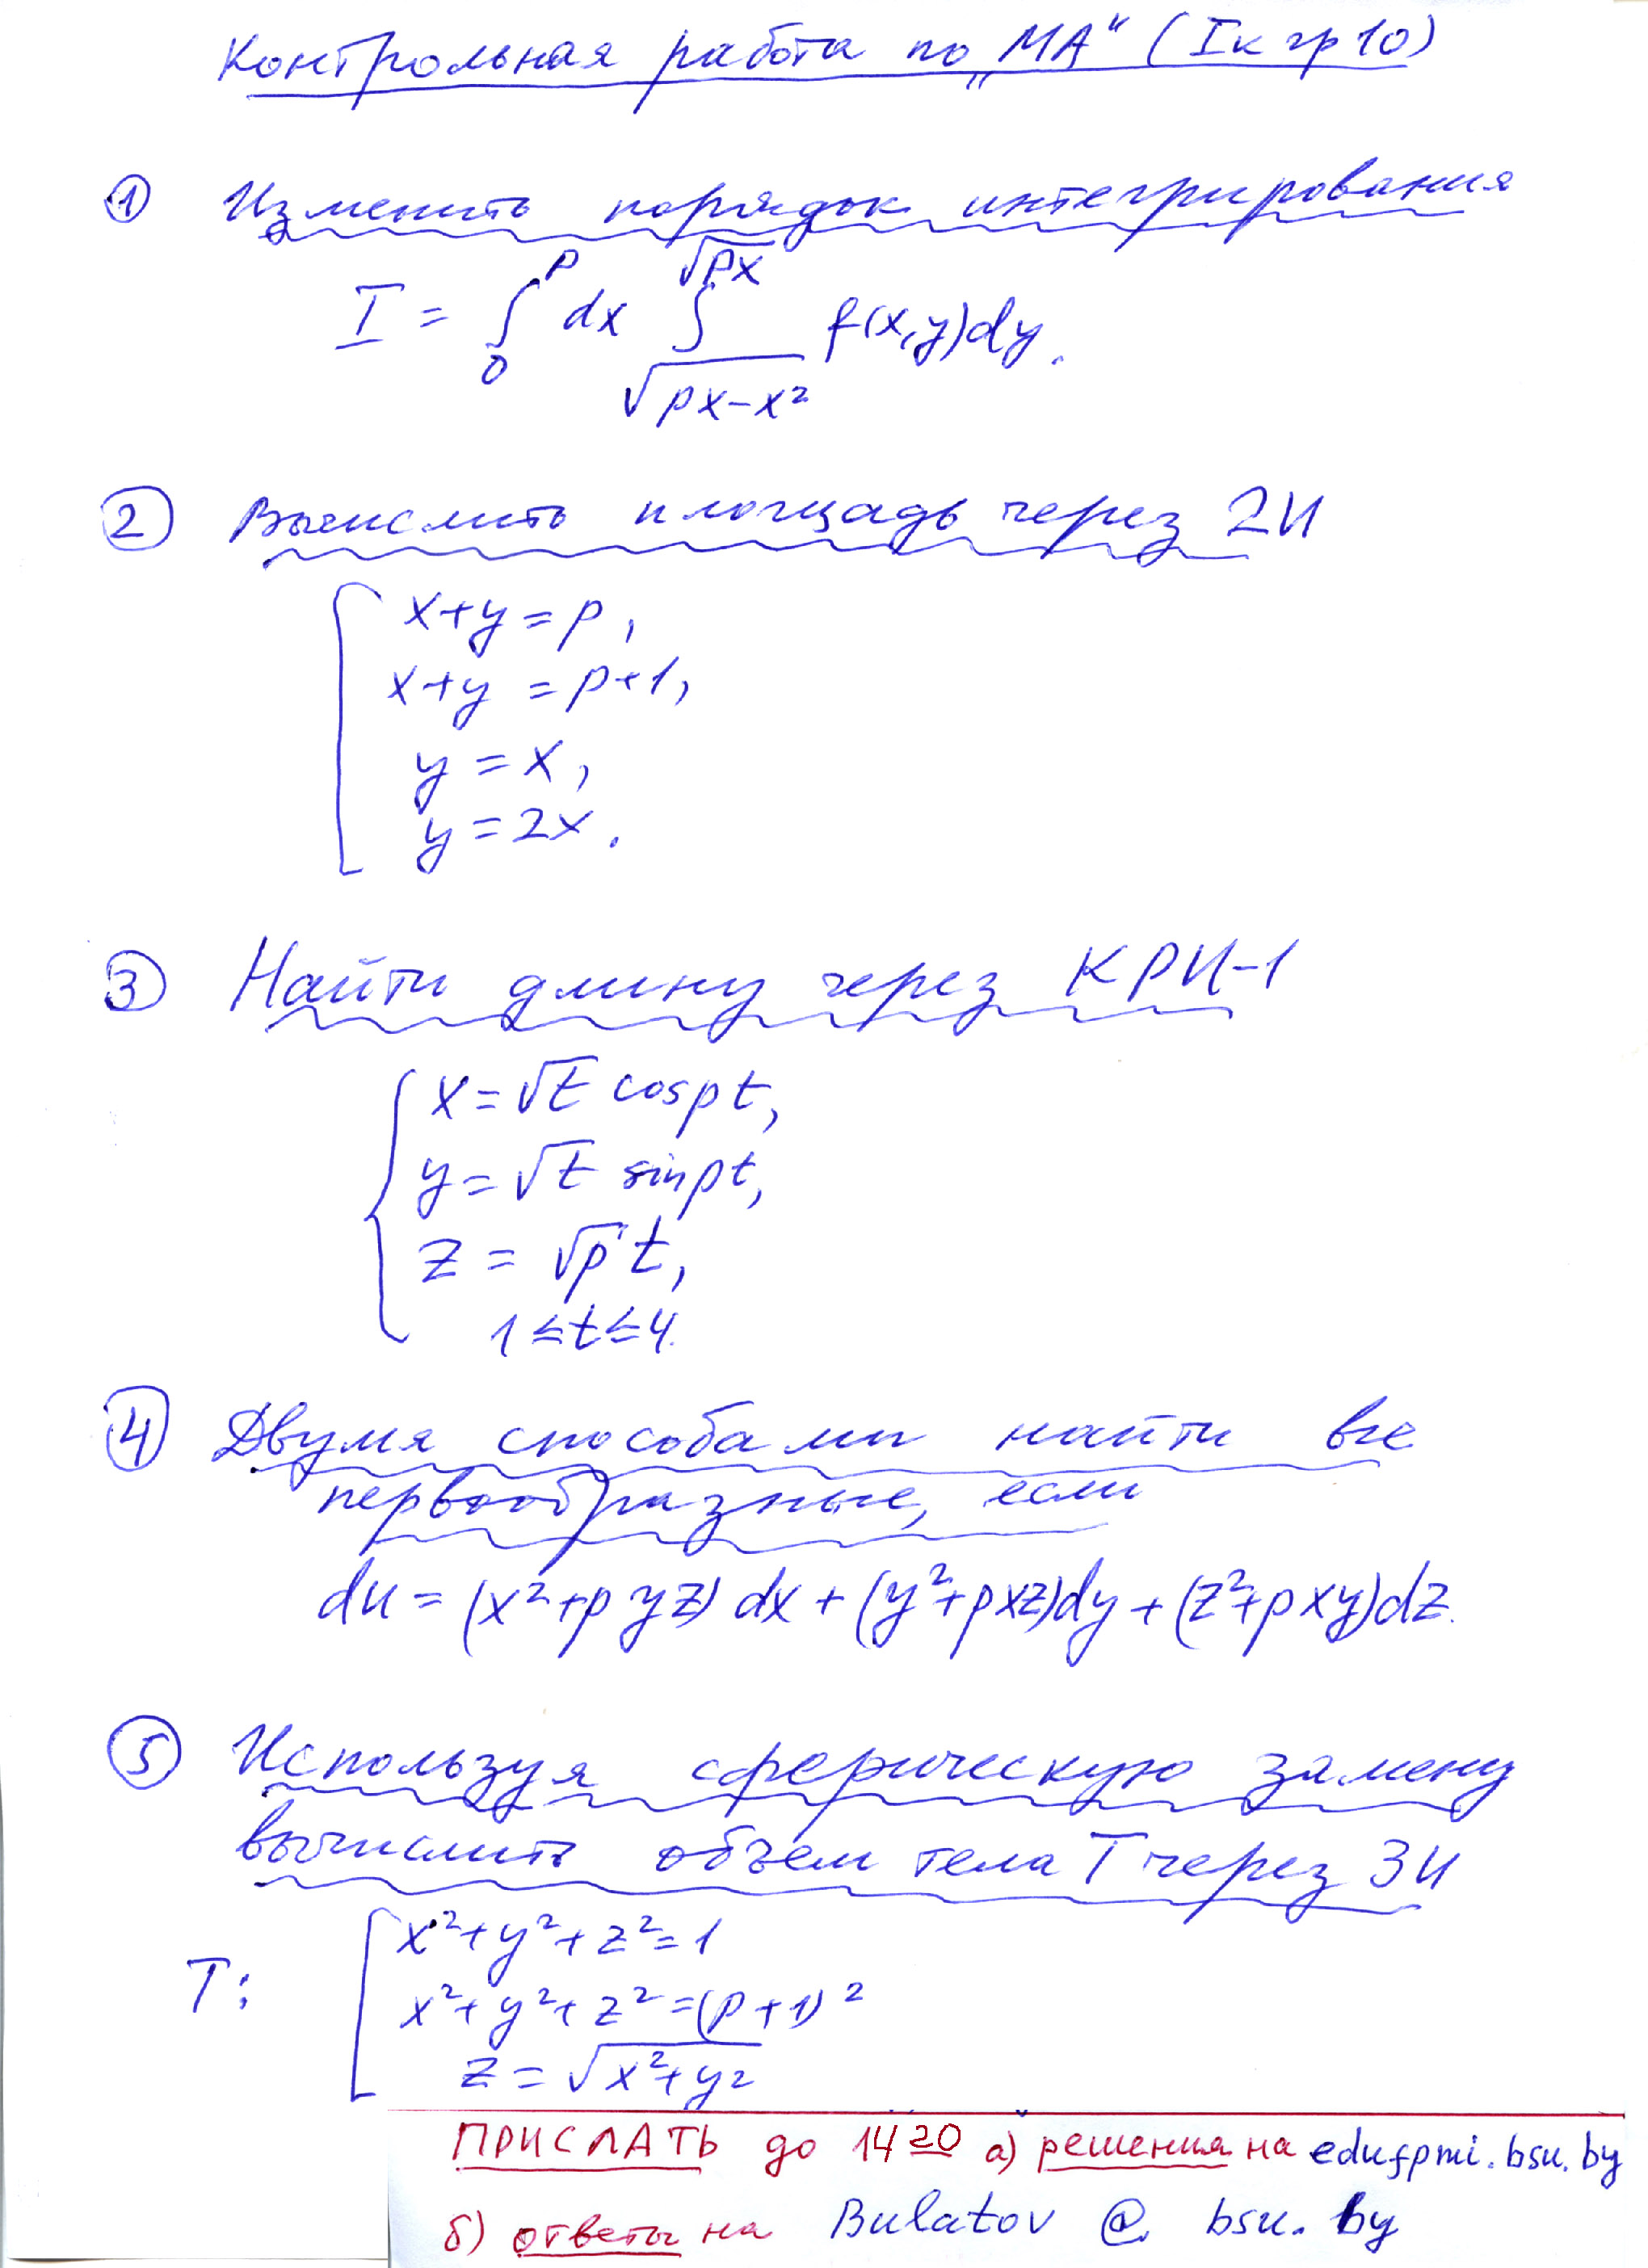 Контрольная работа по „МА“ (Iк гр10)
① Изменить порядок интегрирования
I = ∫₀^p dx ∫_{√(px-x²)}^{√(px)} f(x,y)dy.
② Вычислить площадь через 2И
x+y=p,
x+y=p+1,
y=x,
y=2x.
③ Найти длину через КРИ-1
x=√t cospt,
y=√t sinpt,
z=√p t,
1≤t≤4.
④ Двумя способами найти все
первообразные, если
du=(x²+pyz)dx+(y²+pxz)dy+(z²+pxy)dz.
⑤ Используя сферическую замену
вычислить объем тела T через 3И
T: x²+y²+z²=1
x²+y²+z²=(p+1)²
z=√(x²+y²)
ПРИСЛАТЬ до 14 20 а) решения на edufpmi.bsu.by
б) ответы на Bulatov @ bsu.by